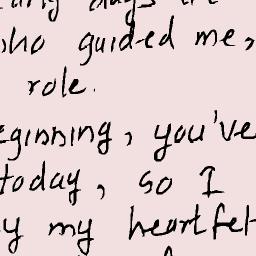 days
who guided me,
role.
eginning, you've
today, so I
y my heartfel